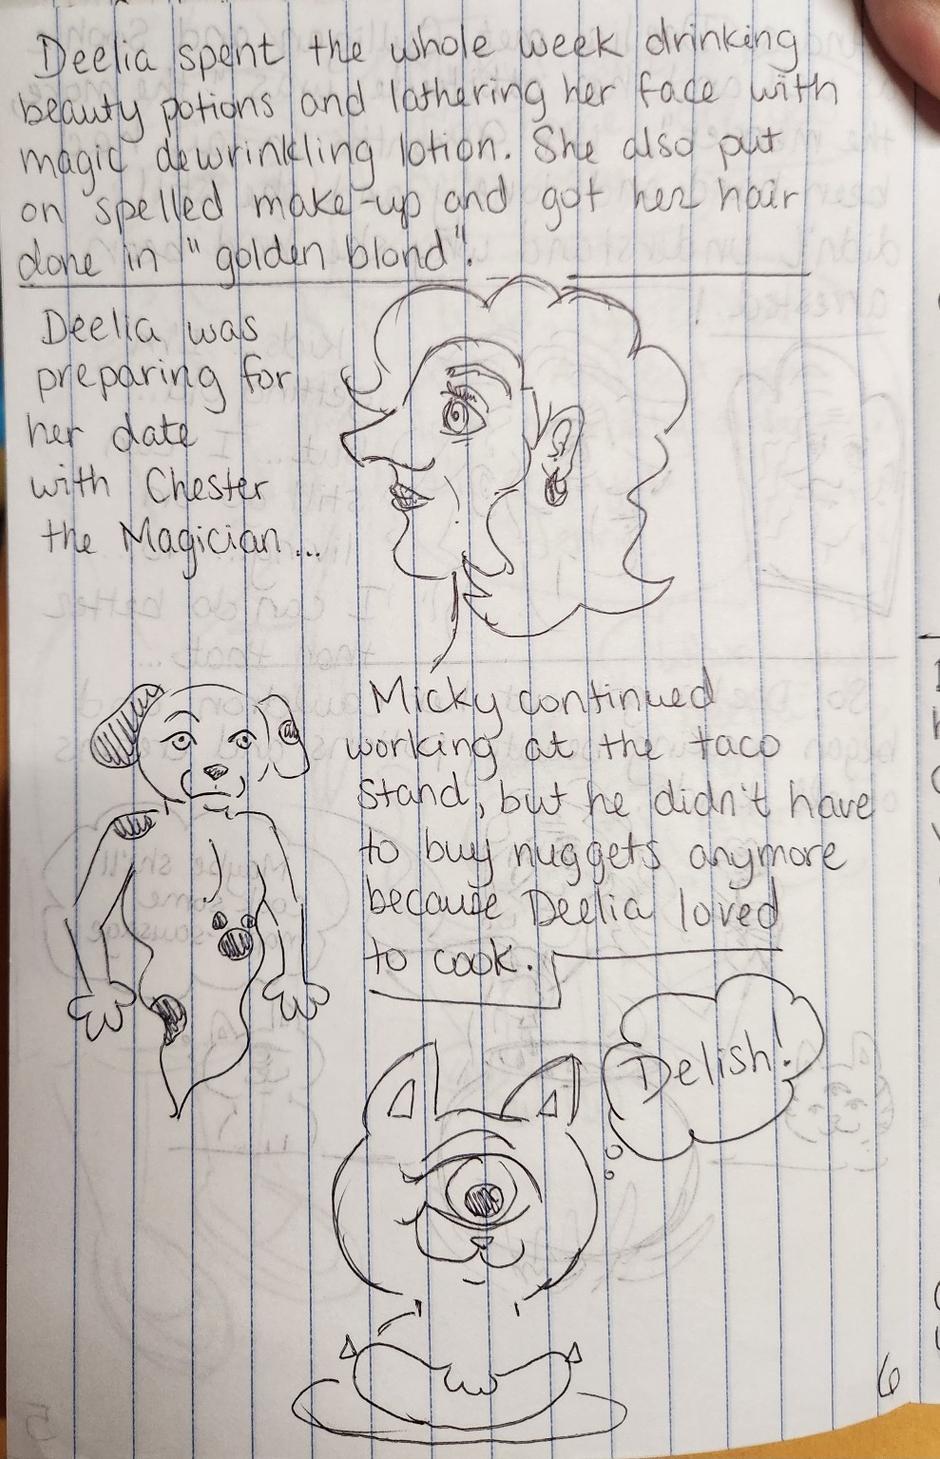 Deelia spent the whole week drinking
beauty potions and lathering her face with
magic dewrinkling lotion. She also put
on spelled make-up and got her hair
done in "golden blond".
Deelia was
preparing for
her date
with Chester
the Magician...
Micky continued
working at the taco
stand, but he didn't have
to buy nuggets anymore
because Deelia loved
to cook.
Delish!
6